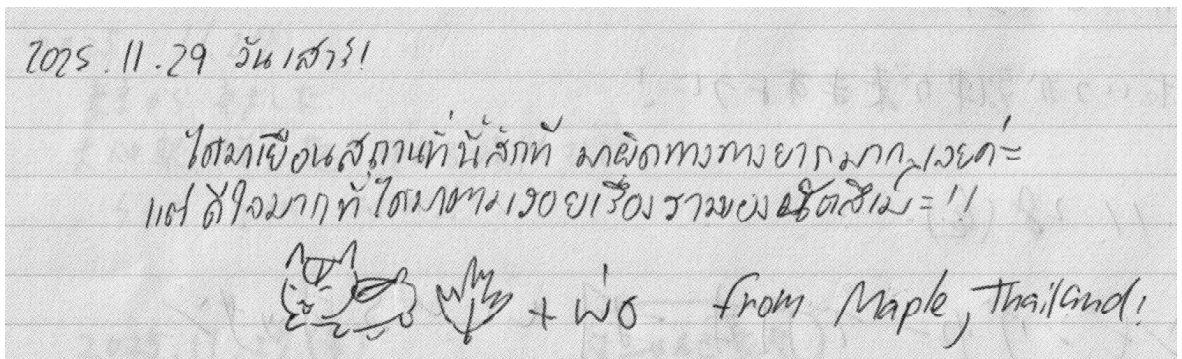 2025.11.29 วันเสาร์!
ได้มาเยือนสถานที่นี้สักที มาผิดทางทางยากมากเลยค่ะ
แต่ดีใจมากที่ได้มาตามรอยเรื่องราวของนัตสึเมะ!!
+ พ่อ from Maple, Thailand!